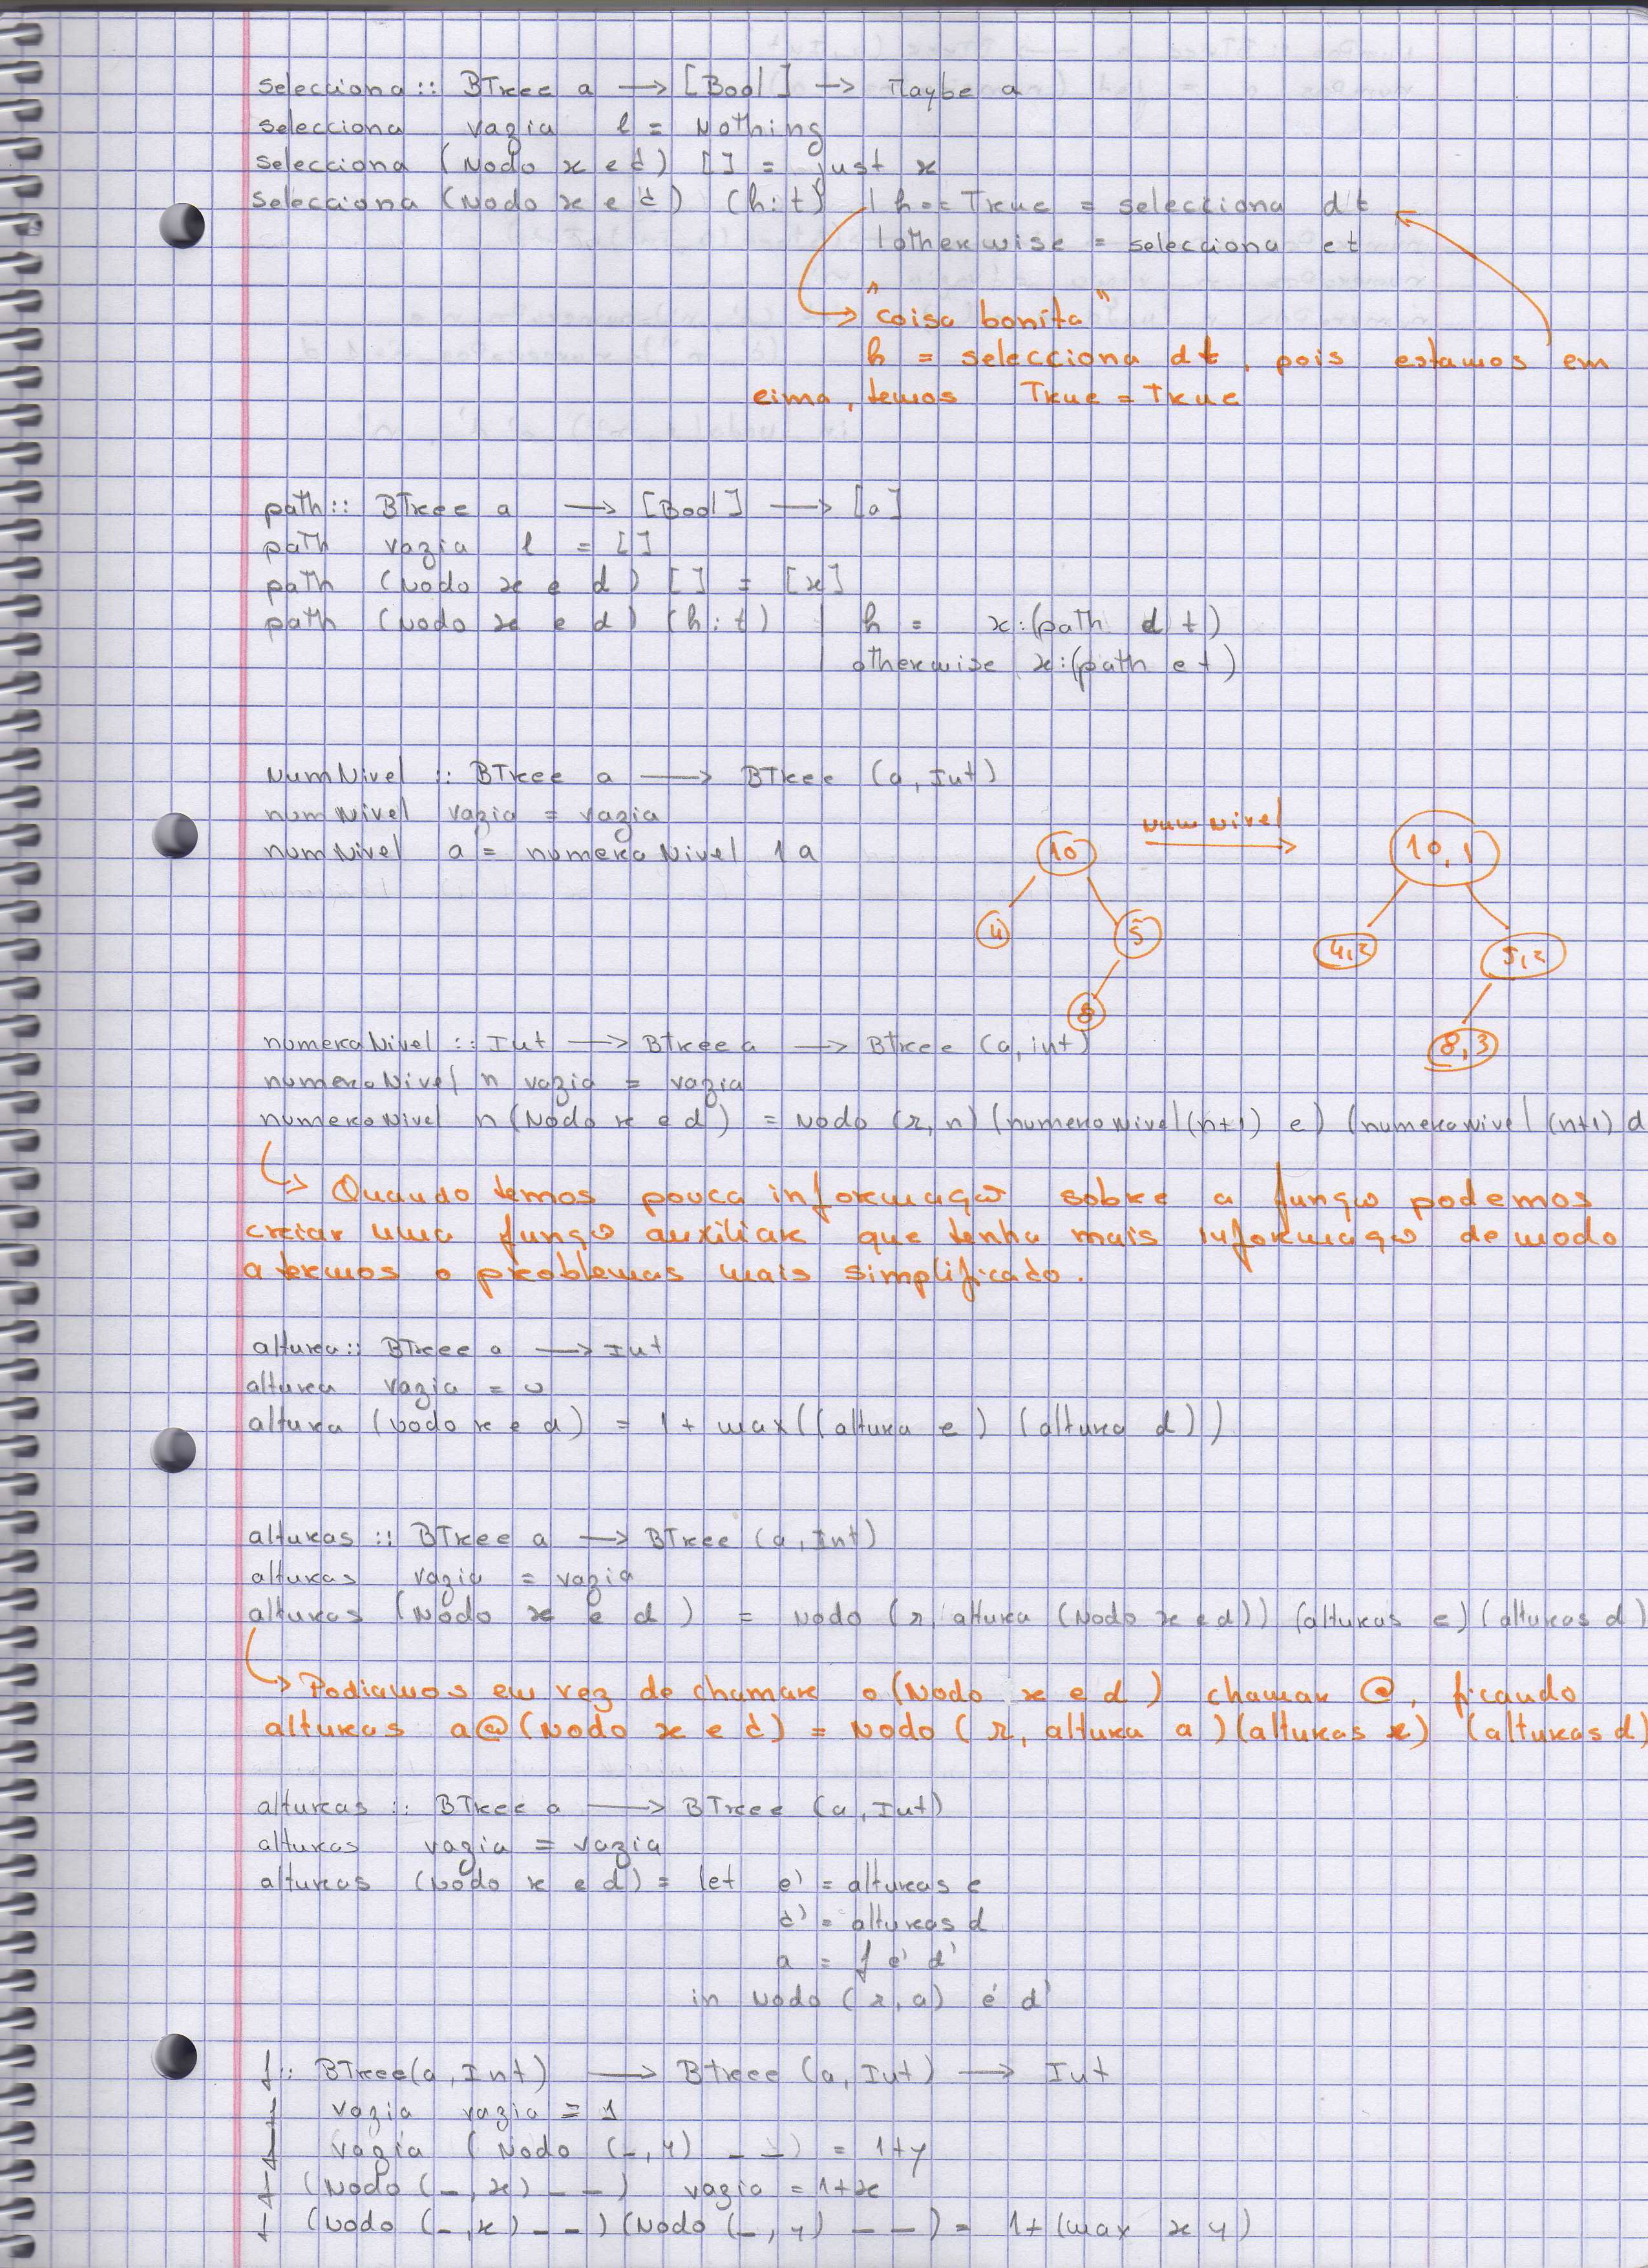 selecciona :: BTree a → [Bool] → Maybe a
selecciona vazia l = Nothing
selecciona (Nodo x e d) [] = just x
selecciona (Nodo x e d) (h:t) | h == True = selecciona d t
| otherwise = selecciona e t
"coisa bonita"
h = selecciona d t, pois estamos em
cima, temos True = True
path :: BTree a → [Bool] → [a]
path vazia l = []
path (Nodo x e d) [] = [x]
path (Nodo x e d) (h:t) | h = x:(path d t)
| otherwise x:(path e t)
NumNivel :: BTree a → BTree (a, Int)
numNivel vazia = vazia
numNivel a = numeraNivel 1 a
10
4
5
8
numNivel
10,1
4,2
5,2
8,3
numeraNivel :: Int → BTree a → BTree (a, int)
numeraNivel n vazia = vazia
numeraNivel n (Nodo x e d) = Nodo (x, n) (numeraNivel (n+1) e) (numeraNivel (n+1) d
Quando temos pouca informaçao sobre a funçao podemos
creiar uma funçao auxiliar que tenha mais informaçao de modo
a termos o problemas mais simplificado.
altura :: BTree a → Int
altura vazia = 0
altura (Nodo x e d) = 1 + max((altura e) (altura d))
alturas :: BTree a → BTree (a, Int)
alturas vazia = vazia
alturas (Nodo x e d) = Nodo (x, altura (Nodo x e d)) (alturas e) (alturas d)
Podiamos em vez de chamar o (Nodo x e d) chamar @, ficando
alturas a@(Nodo x e d) = Nodo (x, altura a) (alturas e) (alturas d)
alturas :: BTree a → BTree (a, Int)
alturas vazia = vazia
alturas (Nodo x e d) = let e' = alturas e
d' = alturas d
a = f e' d'
in Nodo (x, a) e' d'
f :: BTree(a, Int) → BTree (a, Int) → Int
f vazia vazia = 1
f vazia (Nodo (_,y) _ _) = 1+y
f (Nodo (_,x) _ _) vazia = 1+x
f (Nodo (_,x) _ _) (Nodo (_,y) _ _) = 1+ (max x y)